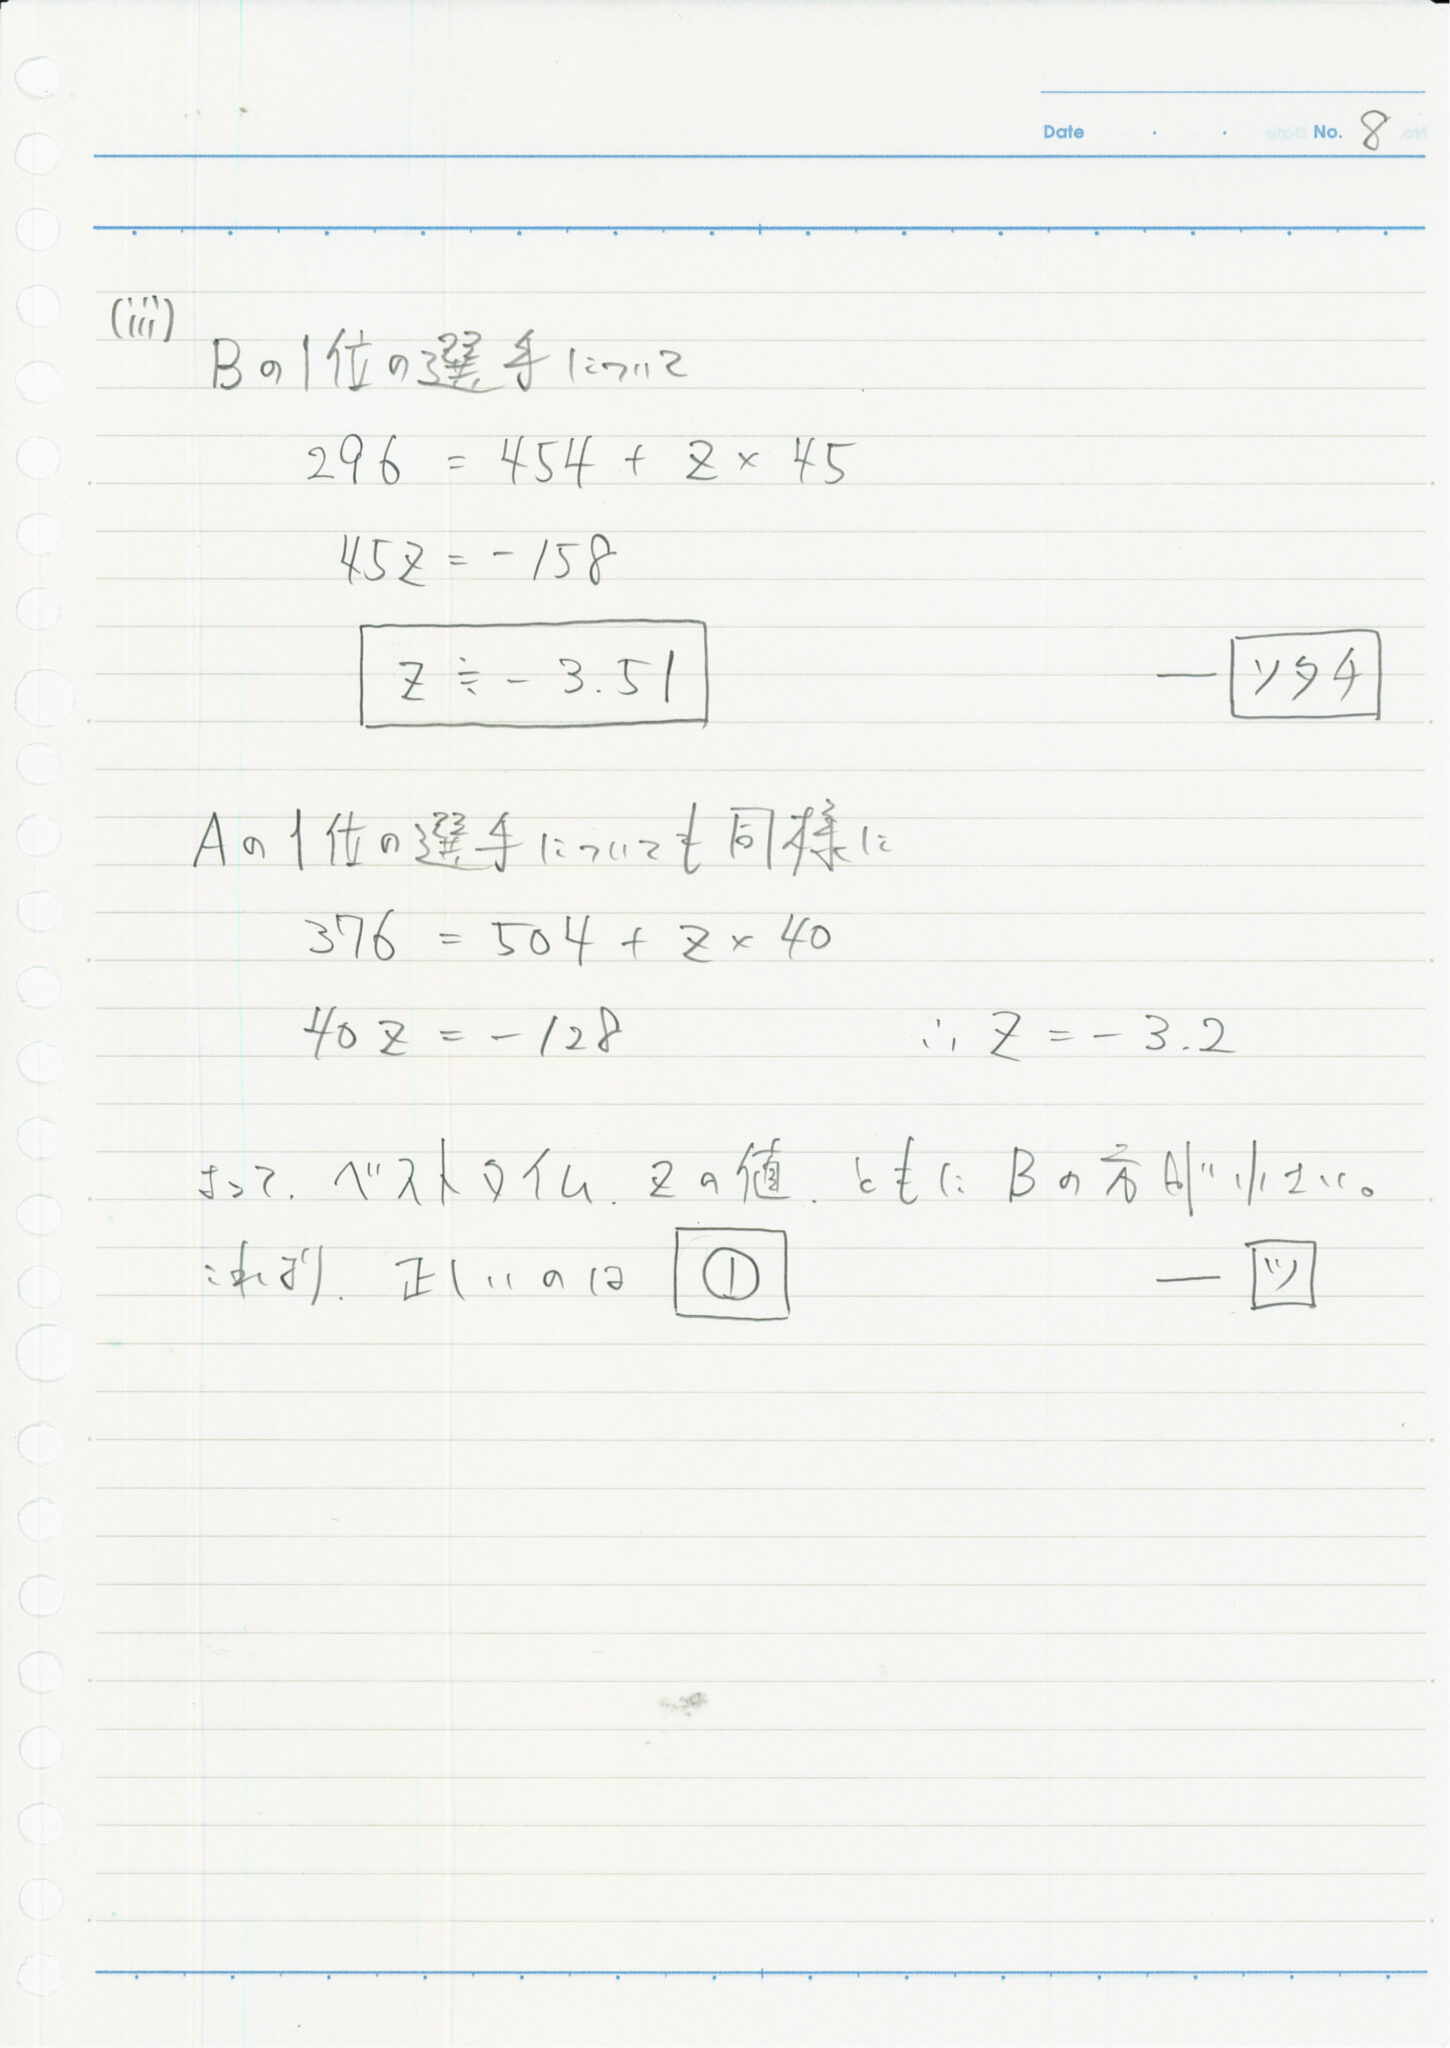 Date ・ ・ No. 8
(iii)
Bの1位の選手について
296 = 454 + Z × 45
45Z = -158
Z ≒ -3.51 — ソタチ
Aの1位の選手についても同様に
376 = 504 + Z × 40
40Z = -128 ∴ Z = -3.2
よって、ベストタイム、Zの値、ともにBの方が小さい。
これより、正しいのは ① — ツ